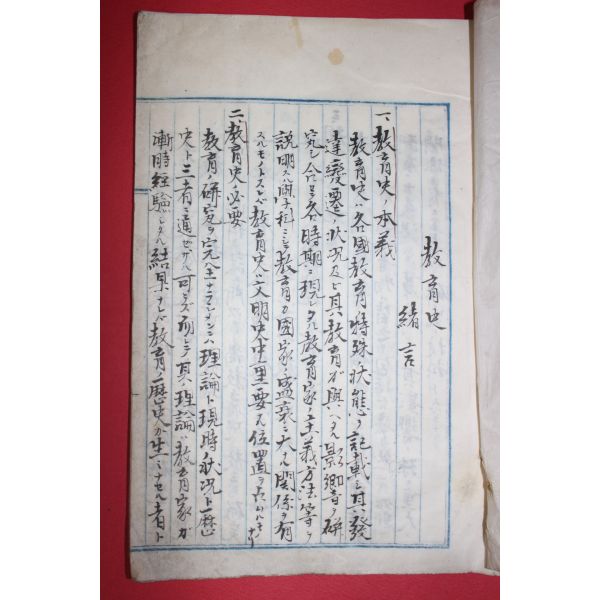 教育史
緒言
一、教育史ノ本義
教育史ハ各國教育特殊ノ状態ヲ記載シ其發
達變遷ノ状况及ビ其教育ガ與ヘタル影響ヲ研
究シ各時期ニ現レタル教育家ノ主義方法等ヲ
説明スル學科ニシテ教育ガ國家ノ盛衰ニ大ナル関係ヲ有
スルモノトスレバ教育史ハ文明史中重要ナル位置ヲ
二、教育史ノ必要
教育ノ研究ヲ完全ナラシメンニハ理論ト現時ノ状况ト歴
史ト三者ニ通ゼザル可ラズ而シテ其理論ハ教育家ガ
漸時経験シタル結果ナレバ教育ノ歴史ガ生ミナセル者ト